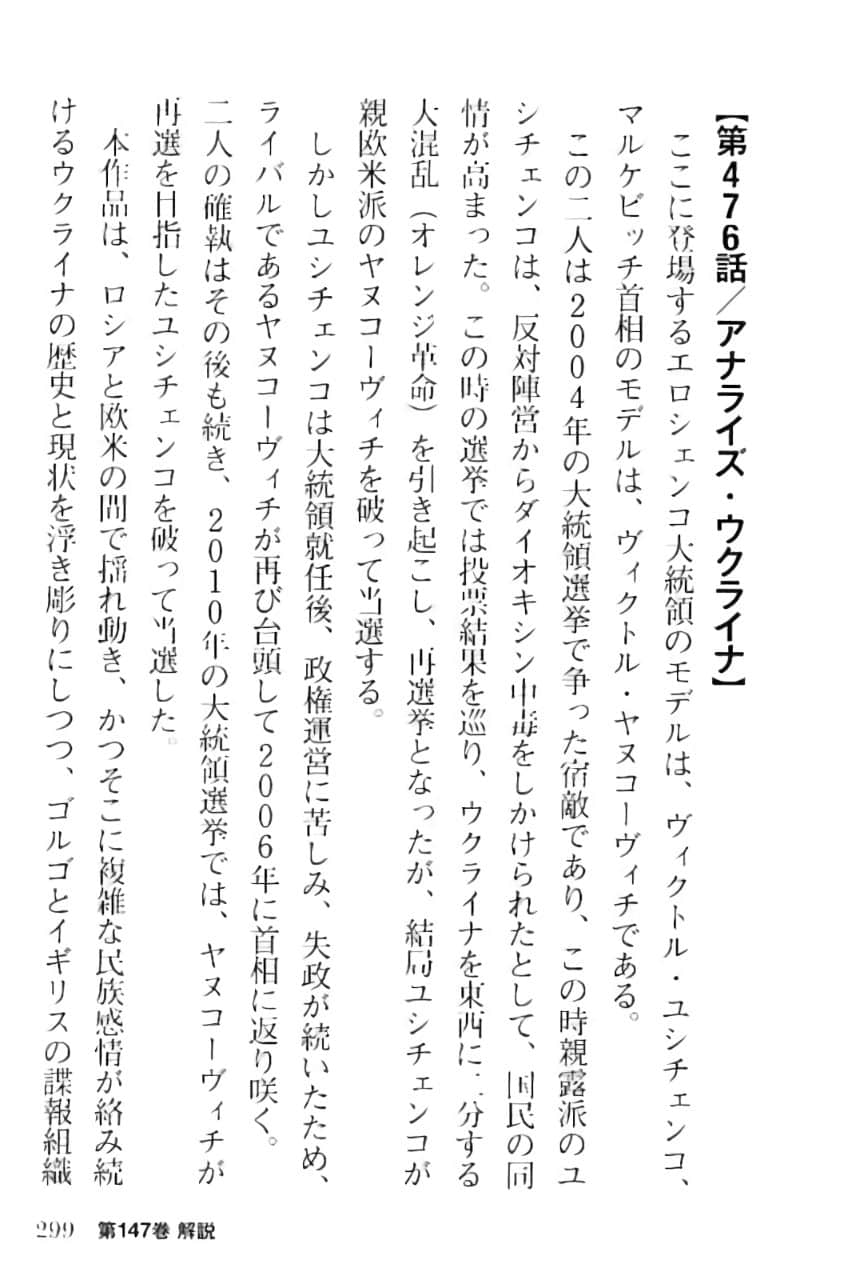 【第476話/アナライズ・ウクライナ】
ここに登場するエロシェンコ大統領のモデルは、ヴィクトル・ユシチェンコ、
マルケビッチ首相のモデルは、ヴィクトル・ヤヌコーヴィチである。
この二人は2004年の大統領選挙で争った宿敵であり、この時親露派のユ
シチェンコは、反対陣営からダイオキシン中毒をしかけられたとして、国民の同
情が高まった。この時の選挙では投票結果を巡り、ウクライナを東西に二分する
大混乱（オレンジ革命）を引き起こし、再選挙となったが、結局ユシチェンコが
親欧米派のヤヌコーヴィチを破って当選する。
しかしユシチェンコは大統領就任後、政権運営に苦しみ、失政が続いたため、
ライバルであるヤヌコーヴィチが再び台頭して2006年に首相に返り咲く。
二人の確執はその後も続き、2010年の大統領選挙では、ヤヌコーヴィチが
再選を目指したユシチェンコを破って当選した。
本作品は、ロシアと欧米の間で揺れ動き、かつそこに複雑な民族感情が絡み続
けるウクライナの歴史と現状を浮き彫りにしつつ、ゴルゴとイギリスの諜報組織
299 第147巻 解説